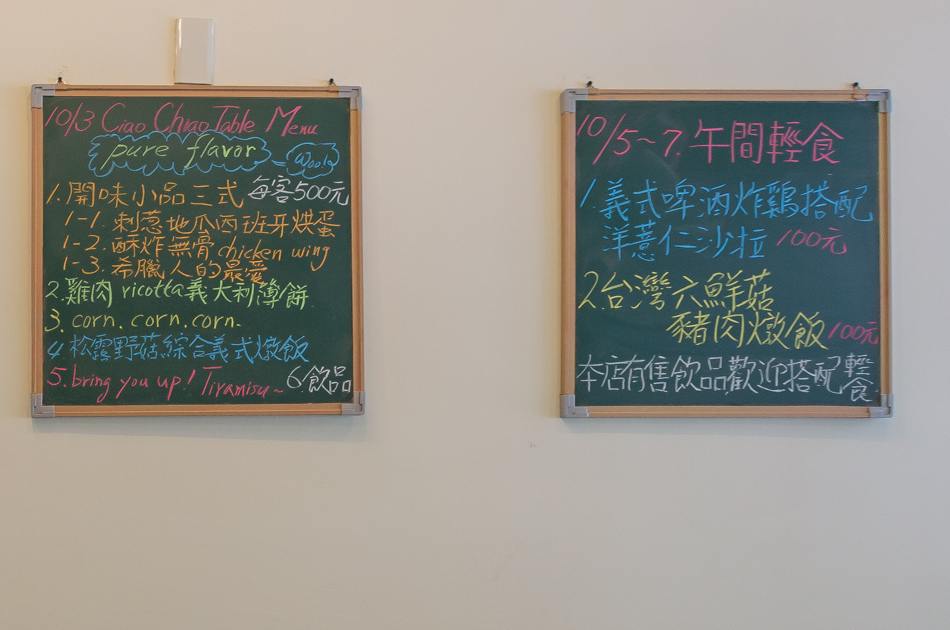 10/3 Ciao Chiao Table Menu
pure flavor
1. 開味小品三式 每客500元
1-1. 刺蔥地瓜西班牙烘蛋
1-2. 酥炸無骨 chicken wing
1-3. 希臘人的最愛
2. 雞肉 ricotta義大利薄餅
3. corn. corn. corn.
4 松露野菇綜合義式燉飯
5. bring you up! Tiramisu~ 6.飲品
10/5~7. 午間輕食
1. 義式啤酒炸鷄搭配
洋薏仁沙拉 100元
2. 台灣六鮮菇
豬肉燉飯 100元
本店有售飲品歡迎搭配輕食